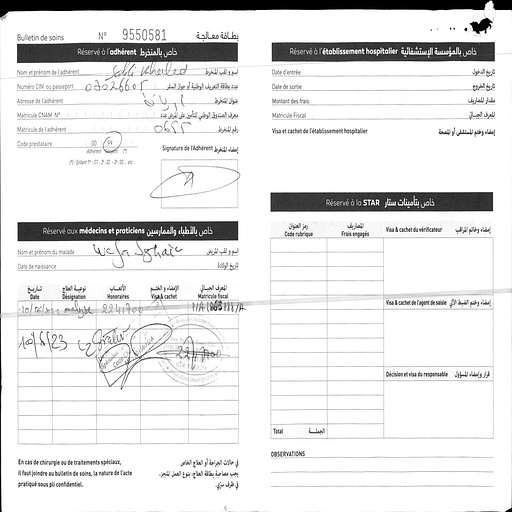 Bulletin de soins N° 9550581 بطاقة معالجة
Réservé à l'adhérent خاص بالمنخرط
Nom et prénom de l'adhérent Khaled اسم و لقب المنخرط
Numéro CIN ou passeport عدد بطاقة التعريف الوطنية أو جواز السفر
Adresse de l'adhérent عنوان المنخرط
Matricule CNAM N° معرف الصندوق الوطني للتأمين على المرض عدد
Matricule de l'adhérent 0655 رقم المنخرط
Code prestataire 00 99
Adhérent (*)
Signature de l'Adhérent إمضاء المنخرط
(*): Enfant 1er : 01 - 2 : 02 - 3 : 03 ... etc
Réservé aux médecins et praticiens خاص بالأطباء والممارسين
Nom et prénom du malade Wafa اسم و لقب المريض
Date de naissance تاريخ الولادة
تاريخ نوعية العلاج الأتعاب الإمضاء و الختم المعرف الجبائي
Date Désignation Honoraires Visa & cachet Matricule fiscal
analyse
10/6/23
En cas de chirurgie ou de traitements spéciaux,
il faut joindre au bulletin de soins, la nature de l'acte
pratiqué sous pli confidentiel.
في حالات الجراحة أو العلاج الخاص
يجب مصاحبة بطاقة العلاج، بنوع العمل المنجز،
في ظرف سري.
Réservé à l'établissement hospitalier خاص بالمؤسسة الإستشفائية
Date d'entrée تاريخ الدخول
Date de sortie تاريخ الخروج
Montant des frais مقدار المصاريف
Matricule Fiscal المعرف الجبائي
Visa et cachet de l'établissement hospitalier إمضاء وختم المستشفى أو المصحة
Réservé à la STAR خاص بتأمينات ستار
رمز العنوان المصاريف
Code rubrique Frais engagés
Visa & cachet du vérificateur إمضاء وختم المراقب
Visa & cachet de l'agent de saisie إمضاء وختم الضبط الآلي
Décision et visa du responsable قرار وإمضاء المسؤول
Total الجملة
OBSERVATIONS